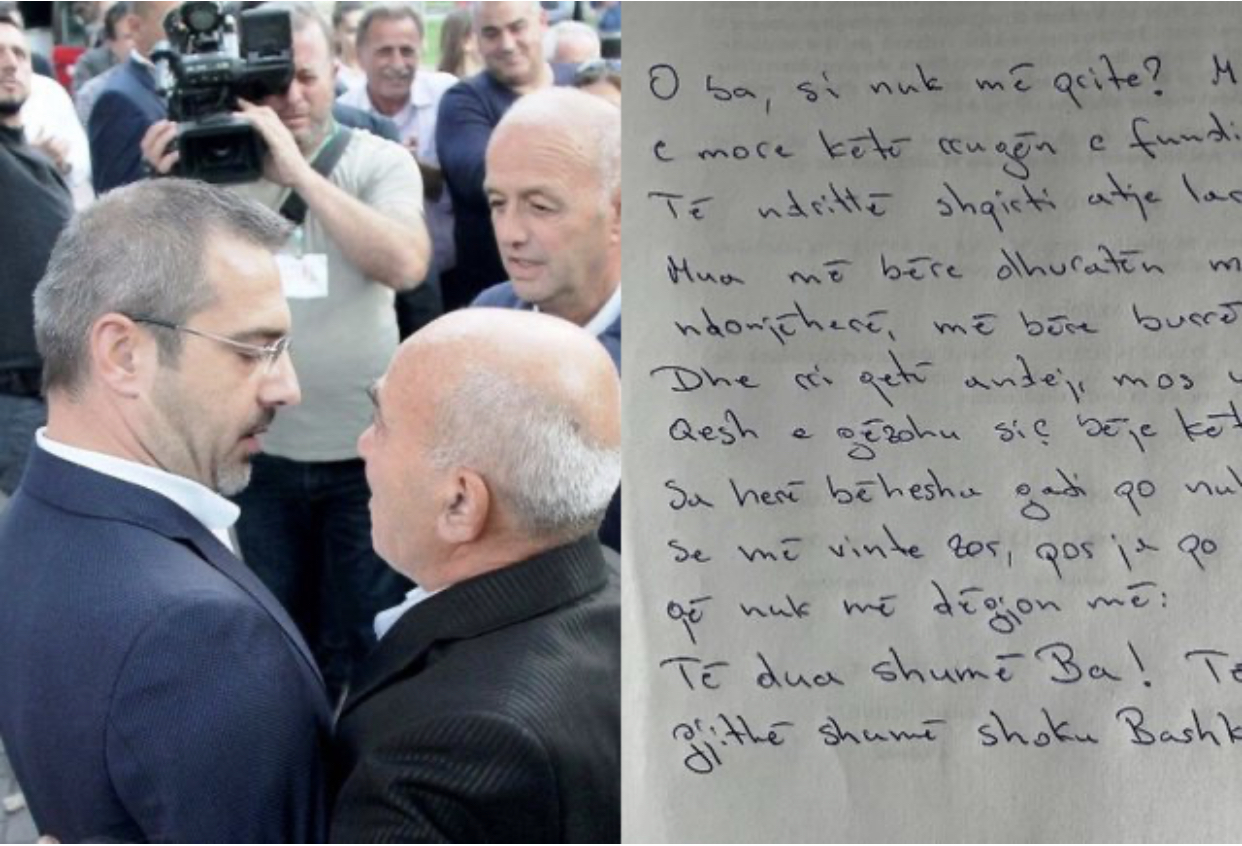 O ba, si nuk më prite? M
e more këtë rrugën e fundi
Të ndrittë shpirti atje lar
Mua më bëre dhuratën m
ndonjëherë, më bëre burrë
Dhe rri qetë andej, mos
Qesh e gëzohu siç bëje kët
Sa herë bëhesha gadi po nuk
Se më vinte zor, por ja po
që nuk më dëgjon më:
Të dua shumë Ba! Të
gjithë shumë shoku Bashk